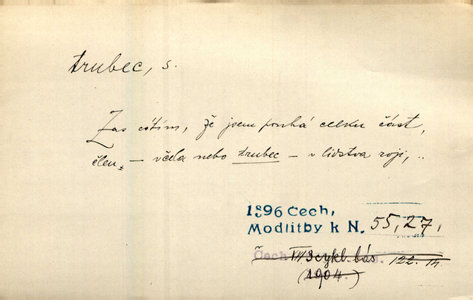 trubec, s.
Zas cítím, že jsem pouhá celku část,
člen, – včela nebo trubec – v lidstva roji,..
1896 Čech,
Modlitby k N. 55,27,
Čech III 3 cykl. bás. 122. 14
(1904.)